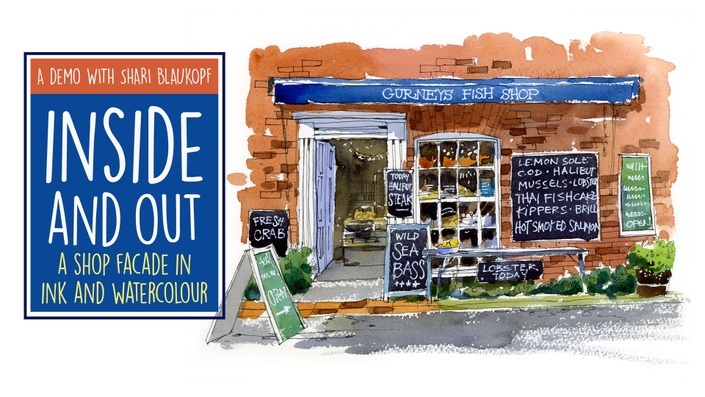 A DEMO WITH SHARI BLAUKOPF
INSIDE
AND OUT
A SHOP FACADE IN
INK AND WATERCOLOUR
GURNEYS FISH SHOP
TODAY
HALIBUT
STEAK
FRESH
CRAB
WILD
SEA
BASS
LEMON SOLE
COD · HALIBUT
MUSSELS · LOBSTER
THAI FISHCAKE
KIPPERS · BRILL
HOT SMOKED SALMON
LOBSTER
TODAY
OPEN
OPEN